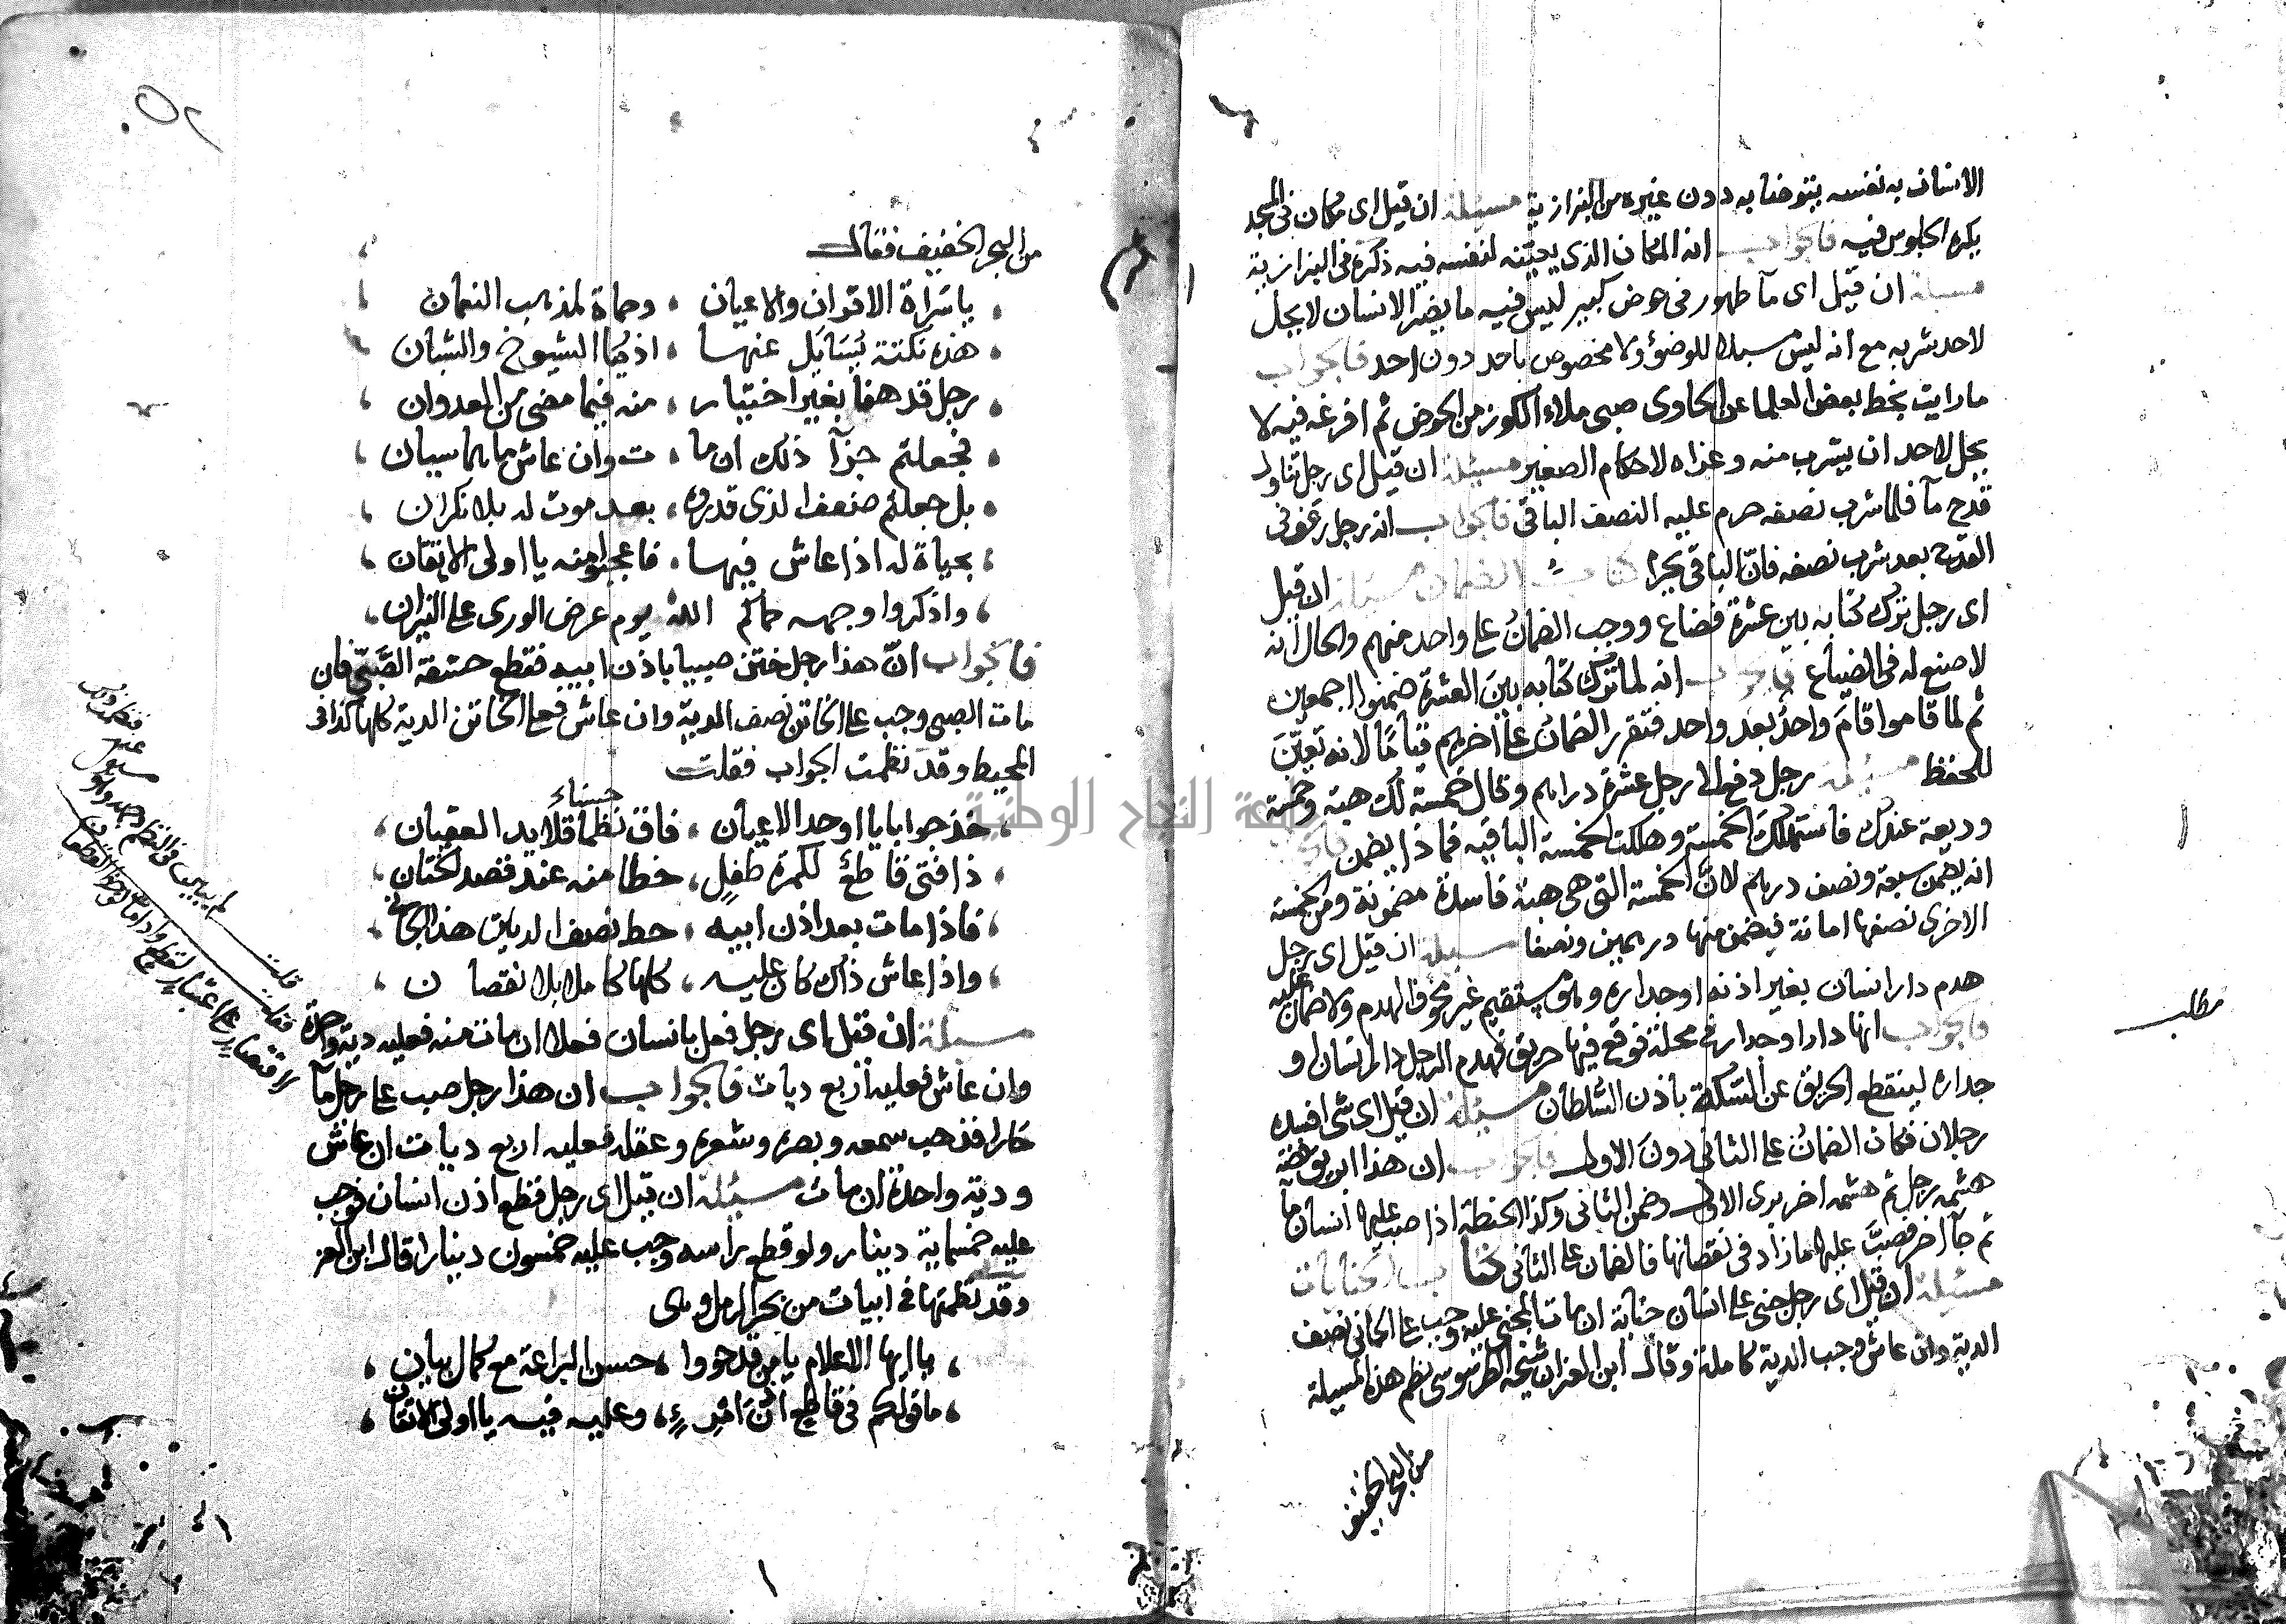 الانسان به نفسه يتوضا به دون غيره من البزازية مسئلة ان قيل اى مكان فى المسجد
يكره الجلوس فيه فالجواب انه المكان الذى يعينه لنفسه فيه ذكره فى البزازية
مسئلة ان قيل اى مآ طهور فى حوض كبير ليس فيه ما يضر الانسان لا يحل
لاحد شربه مع انه ليس مسبلا للوضؤ ولا مخصوص باحد دون احد فالجواب
ما رايت بخط بعض العلما عن الحاوى صبى ملاء الكوز من الحوض ثم افرغه فيه لا
يحل لاحد ان يشرب منه وعزاه لاحكام الصغير مسئلة ان قيل اى رجل تناول
قدح مآ فلما شرب نصفه حرم عليه النصف الباقى فالجواب انه رجل رعف فى
القدح بعد شرب نصفه فانّ الباقى نجس كتاب الضمان مسئلة ان قيل
اى رجل ترك كتابه بين عشرة فضاع ووجب الضمان على واحد منهم والحال انه
لا صنع له فى الضياع فالجواب انه لما ترك كتابه بين العشرة ضمنوا اجمعين
ثم لما قاموا قام واحد بعد واحد فتقرر الضمان على اخرهم قياما لانه تعيّن
للحفظ مسئلة رجل دفع الى رجل عشرة دراهم وقال خمسة لك هبة وخمسة
وديعة عندك فاستهلك الخمسة وهلكت الخمسة الباقيه فماذا يضمن
انه يضمن سبعة ونصف درهم لانّ الخمسة التى هى هبة فاسدة مضمونة ومن الخمسة
الاخرى نصفها امانة فيضمن منها درهمين ونصفا مسئلة ان قيل اى رجل
هدم دار انسان بغير اذنه او جداره وهو مستقيم غير مخوف الهدم ولا ضمان عليه
فالجواب انها دار او جدار فى محلة فوقع فيها حريق فهدم الرجل دار انسان او
جداره لينقطع الحريق عن السكة باذن السلطان مسئلة ان قيل اى شى افسده
رجلان فكان الضمان على الثانى دون الاول فالجواب ان هذا ابريق فضة
هشمه رجل ثم هشمه اخر برى الاول وضمن الثانى وكذا الحنطة اذا صب عليها انسان مآ
ثم جآ اخر فصبّ عليها ما زاد فى نقصانها فالضمان على الثانى كتاب الجنايات
مسئلة ان قيل اى رجل جنى على انسان جناية ان مات المجنى عليه وجب على الجانى نصف
الدية وان عاش وجب الدية كاملة وقال ابن العز ان شيخه الطرسوسى نظم هذه المسيلة
من البحر الخفيف
مطلب
من البحر الخفيف فقال
يا سَراة الاقران والاعيان ، وحماة لمذهب النعمان
هذه نكتة يُسَايَل عنها ، اذكيا الشيوخ والشبان
رجل قد هفا بغير اختيار ، منه فيما مضى من العدوان
فجعلتم جزآ ذلك ان ما ، ت وان عاش ما هما سيان
بل جعلتم ضعف الذى قدروه ، بعد موت له بلا نكران
بحياة له اذا عاش فيها ، فاعجبوا منه يا اولى الاتقان
واذكروا وجهه حماكم الله يوم عرض الورى على النيران
فالجواب انّ هذا رجل ختن صبيا باذن ابيه فقطع حشفة الصّبىّ فان
مات الصبى وجب على الخاتن نصف الدية وان عاش فعلى الخاتن الدية كلها كذا فى
المحيط وقد نظمت الجواب فقلت
خذ جوابا يا اوحد الاعيان ، فاق نظما قلايد العقيان
حسناء
ذا فتى قاطعٌ لكمرة طفلٍ ، خطا منه عند قصد لختان
فاذا مات بعد اذن ابيه ، حط نصف الديات هذا الجانى
واذا عاش ذاك كان عليه ، كلها كاملا بلا نقصان
مسئلة ان قيل اى رجل فعل بانسان فعلا ان مات منه فعليه دية واحدة
وان عاش فعليه اربع ديات فالجواب ان هذا رجل صب على رجل مآ
حارا فذهب سمعه وبصره وشعره وعقله فعليه اربع ديات ان عاش
ودية واحدة ان مات مسئلة ان قيل اى رجل قطع اذن انسان فوجب
عليه خمسماية دينار ولو قطع رأسه وجب عليه خمسون دينارا قال ابن العز
وقد نظمتها فى ابيات من بحر الرمل وهى
يا ايها الاعلام يا من قد حووا ، حسن البراعة مع كمال بيان
ما قولكم فى قاطع اذن امرء ، وعليه فيه يا اولى الاتقان